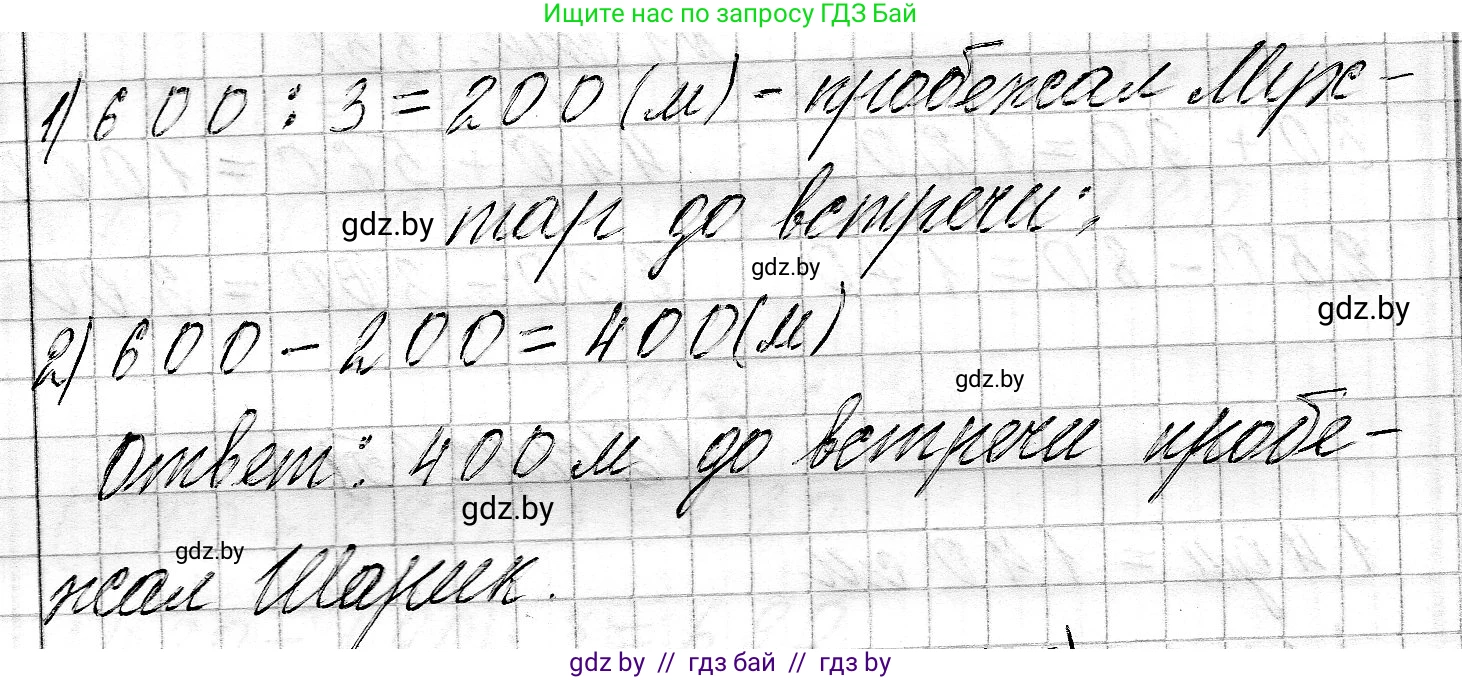 Ищите нас по запросу ГДЗ Бай
1) 600 : 3 = 200 (м) - пробежал Мух-
gdz.by тар до встречи;
gdz.by
gdz.by
2) 600 - 200 = 400 (м)
gdz.by
Ответ: 400 м до встречи пробе-
gdz.by
gdz.by
жал Шарик.
gdz by // гдз бай // гдз by